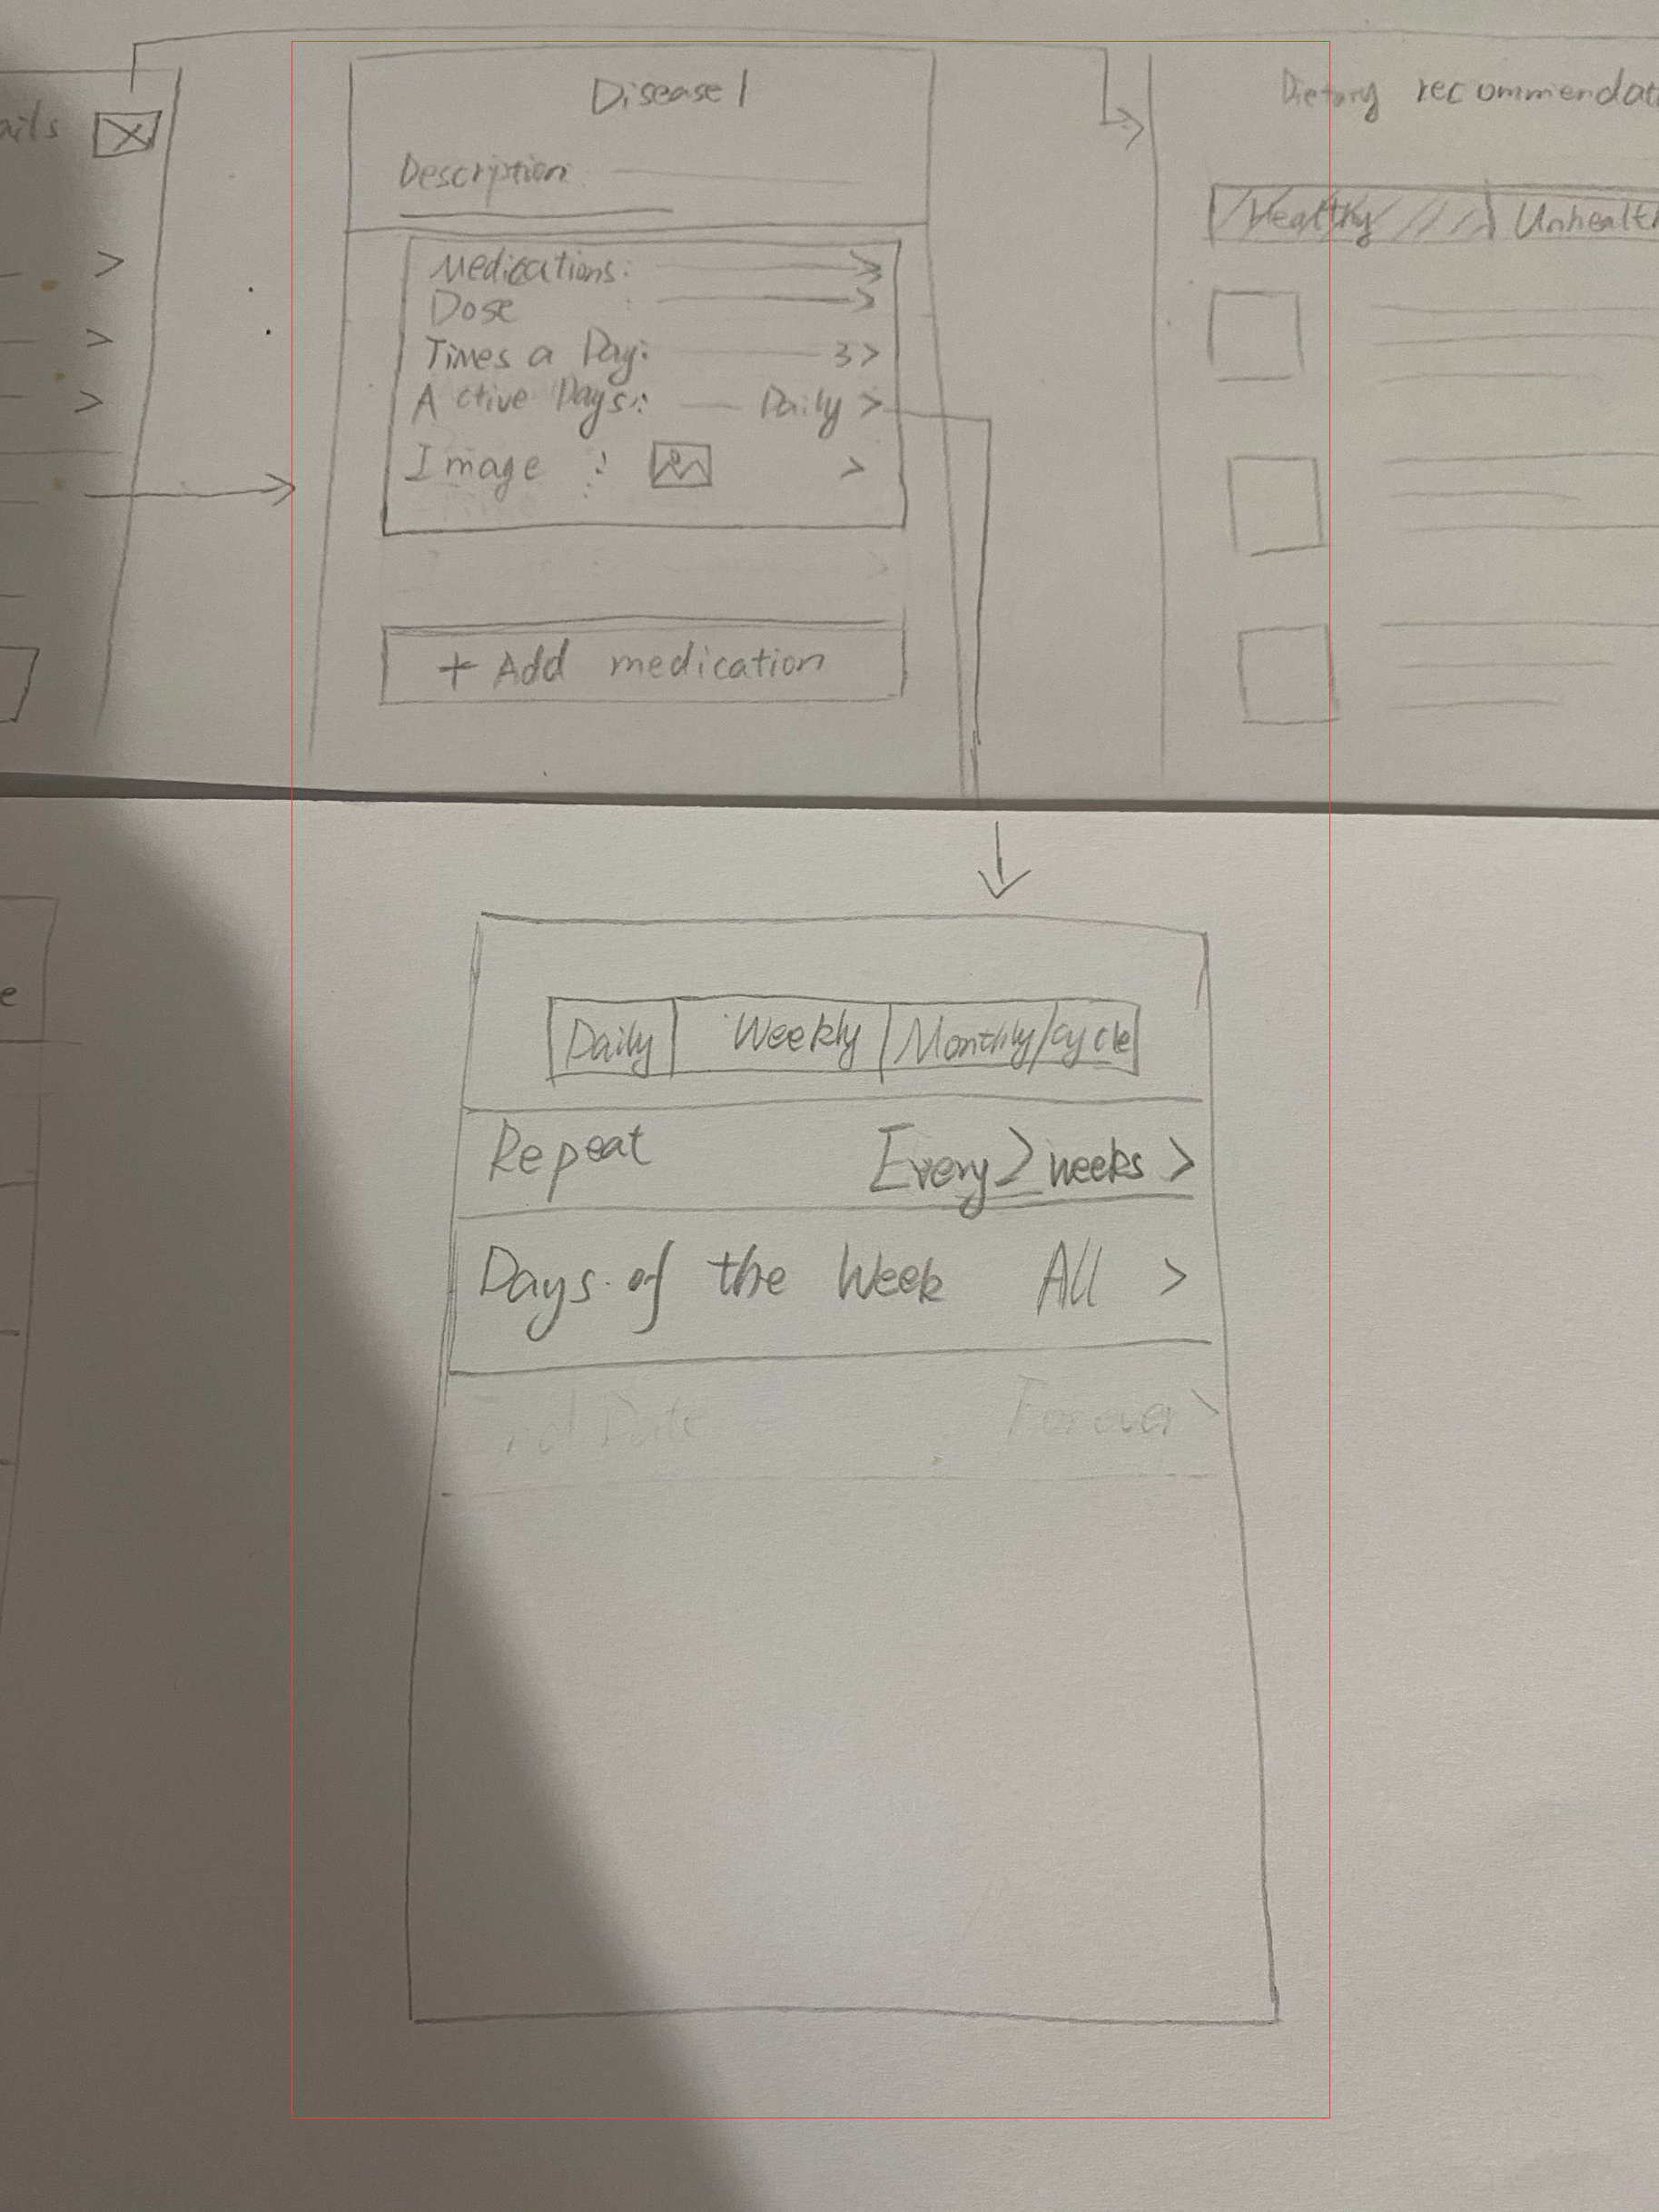 ails
Disease 1
Description:
Medications:
Dose :
Times a Day: 3 >
Active Days: Daily >
Image : >
+ Add medication
Dietary recommendat
Healthy Unhealth
e
Daily Weekly Monthly/cycle
Repeat Every 2 weeks >
Days of the Week All >
End Date Forever >